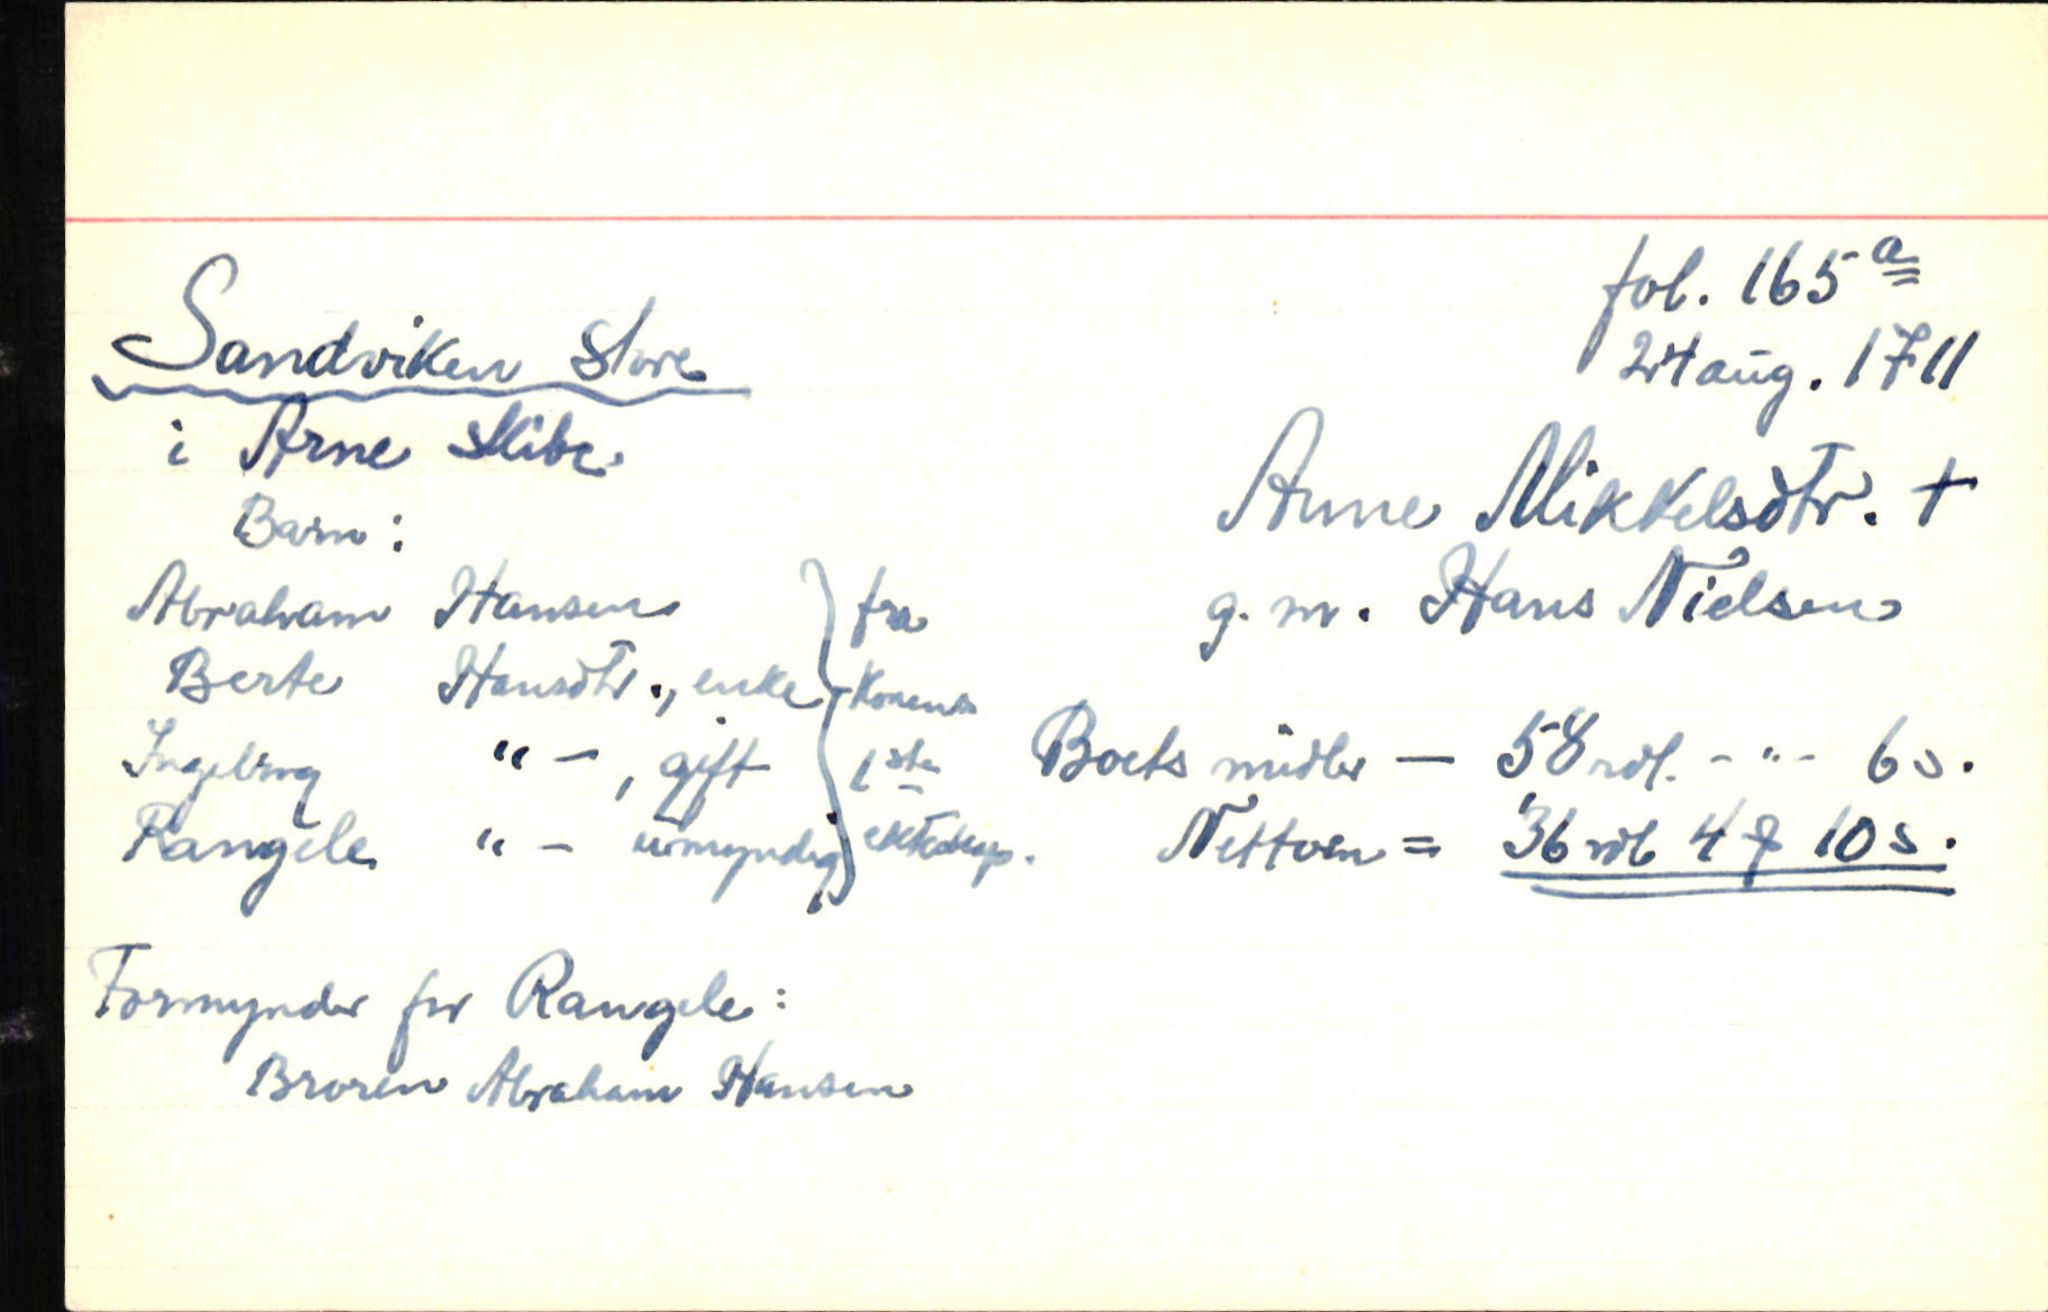 fol. 165 a
24 aug. 1711
Sandviken store
i Arne skibr.
Anne Mikkelsdtr. †
g. m. Hans Nielsen
Barn:
Abraham Hansen
Berte Hansdtr., enke
Ingeborg " –, gift
Rangele " – umyndig
fra
Konens
1ste
ekteskap.
Boets midler — 58 rdl. - " - 6 s.
Nettoen = 36 rdl 4 # 10 s.
Formynder for Rangele:
Broren Abraham Hansen